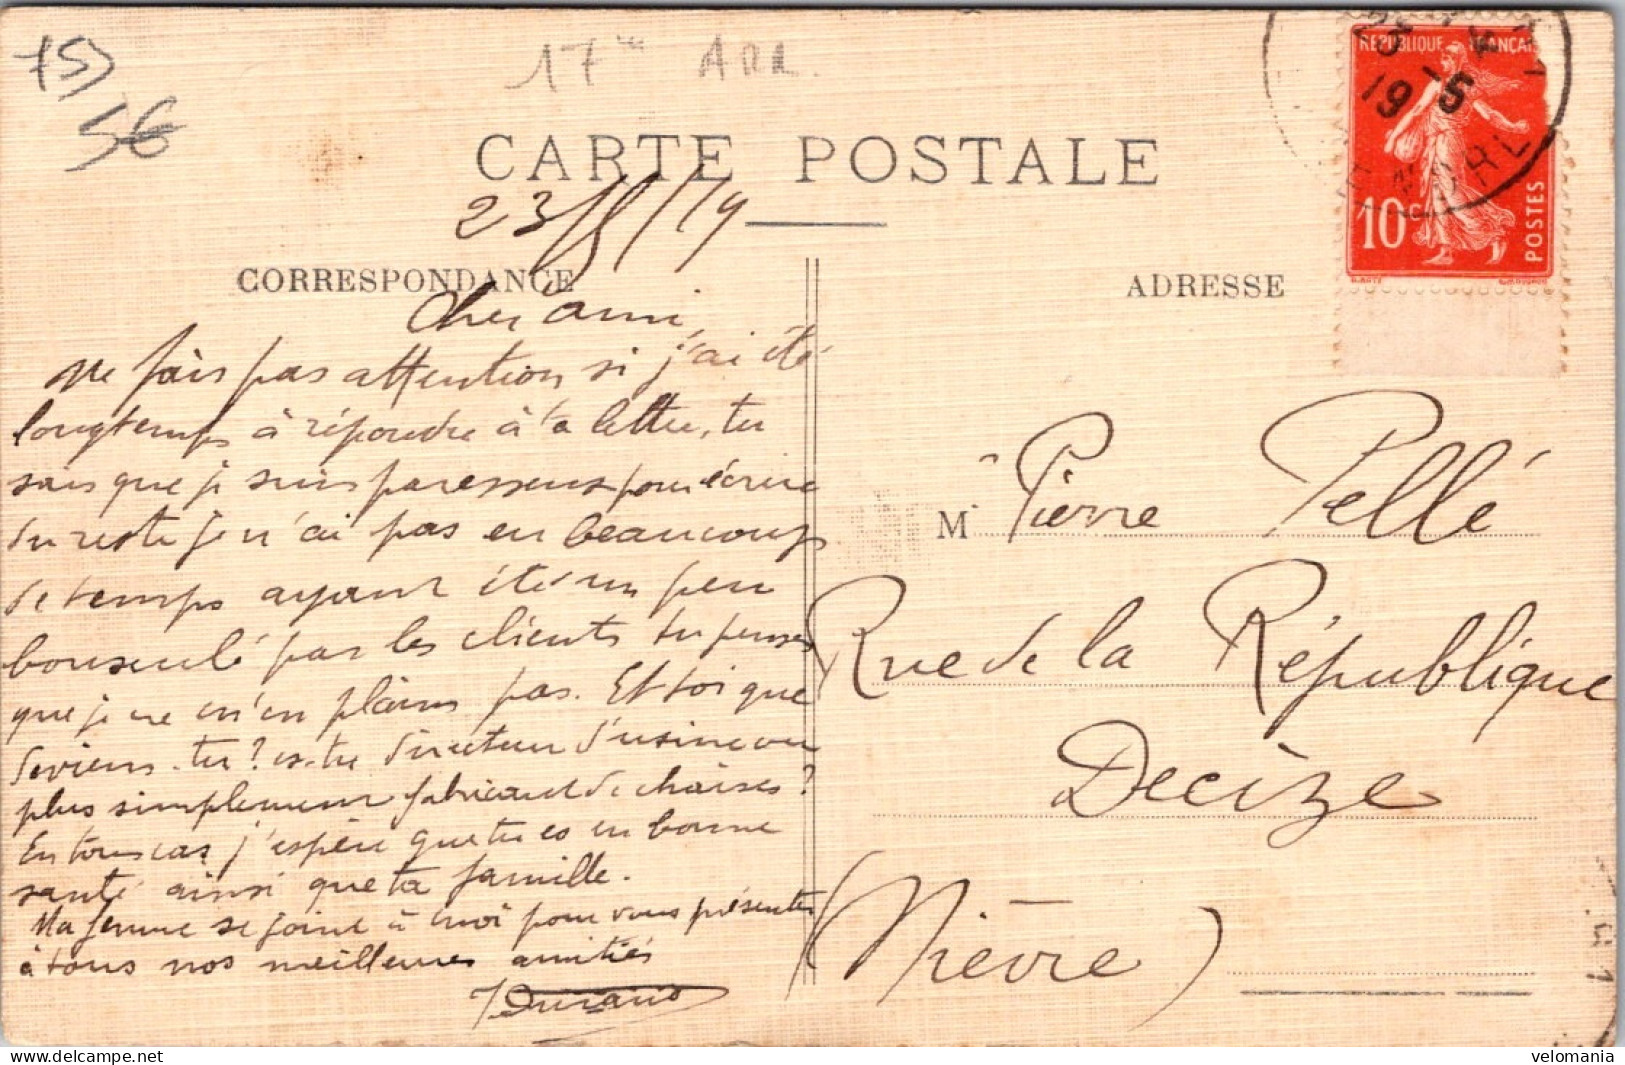 75)
5€
17me ARR.
CARTE POSTALE
23/5/19
CORRESPONDANCE
ADRESSE
REPUBLIQUE FRANÇAI
10c
POSTES
23
19
Cher ami,
Ne fais pas attention si j'ai été
longtemps à répondre à ta lettre, tu
sais que je suis paresseux pour écrire
du reste je n'ai pas eu beaucoup
de temps ayant été un peu
bousculé par les clients tu penses
que je ne m'en plains pas. Et toi que
deviens-tu? es-tu directeur d'usine ou
plus simplement fabricant de chaises?
En tous cas j'espère que tu es en bonne
santé ainsi que ta famille.
Ma femme se joint à moi pour vous présenter
à tous nos meilleures amitiés
Durand
M Pierre Pellé
Rue de la République
Decize
(Nièvre)
velomania